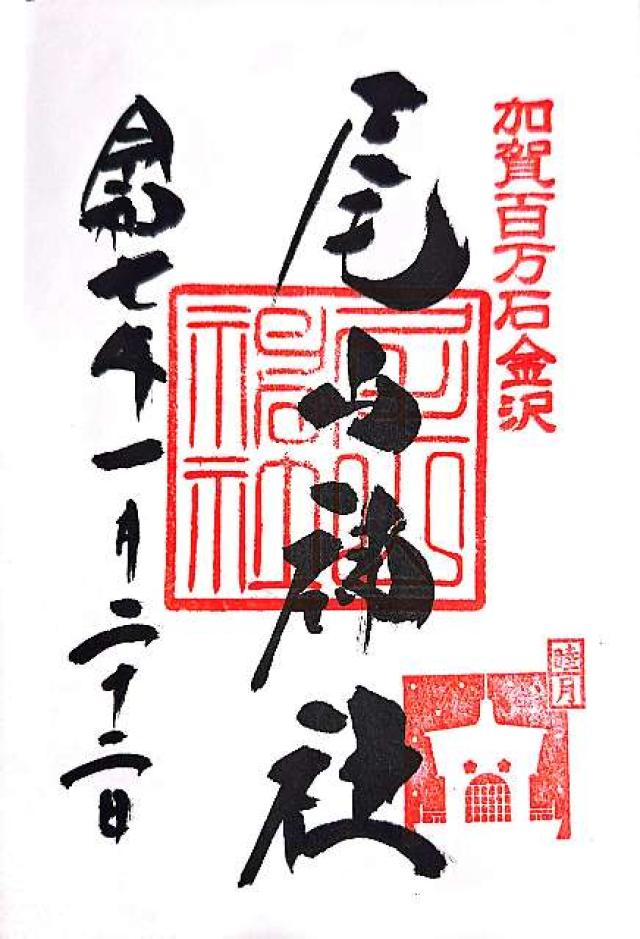 加賀百万石金沢
尾山神社
尾山神社
睦月
令和七年一月二十二日